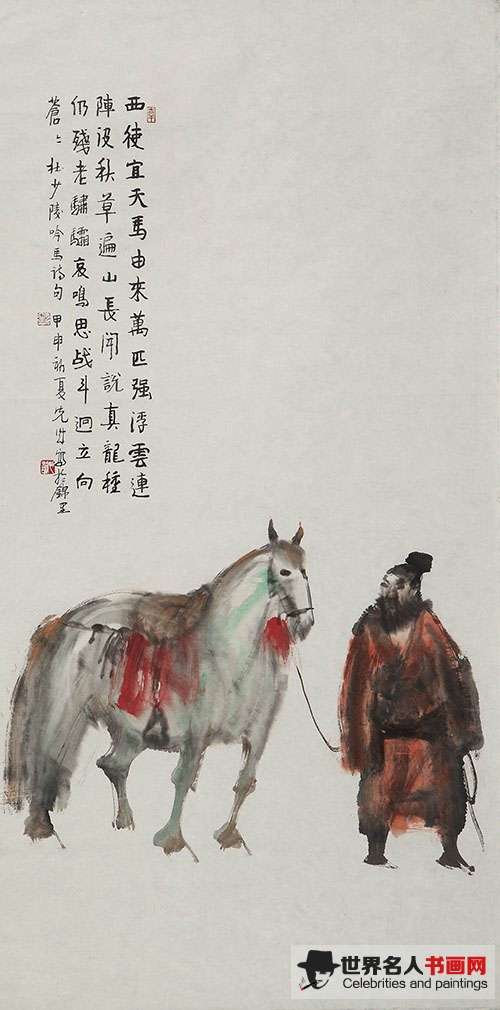 西使宜天馬由來萬匹强浮雲連
陣没秋草遍山長聞説真龍種
仍殘老驌驦哀鳴思战斗迥立向
蒼々杜少陵吟馬诗句甲申初夏先
世界名人书画网
Celebrities and paintings